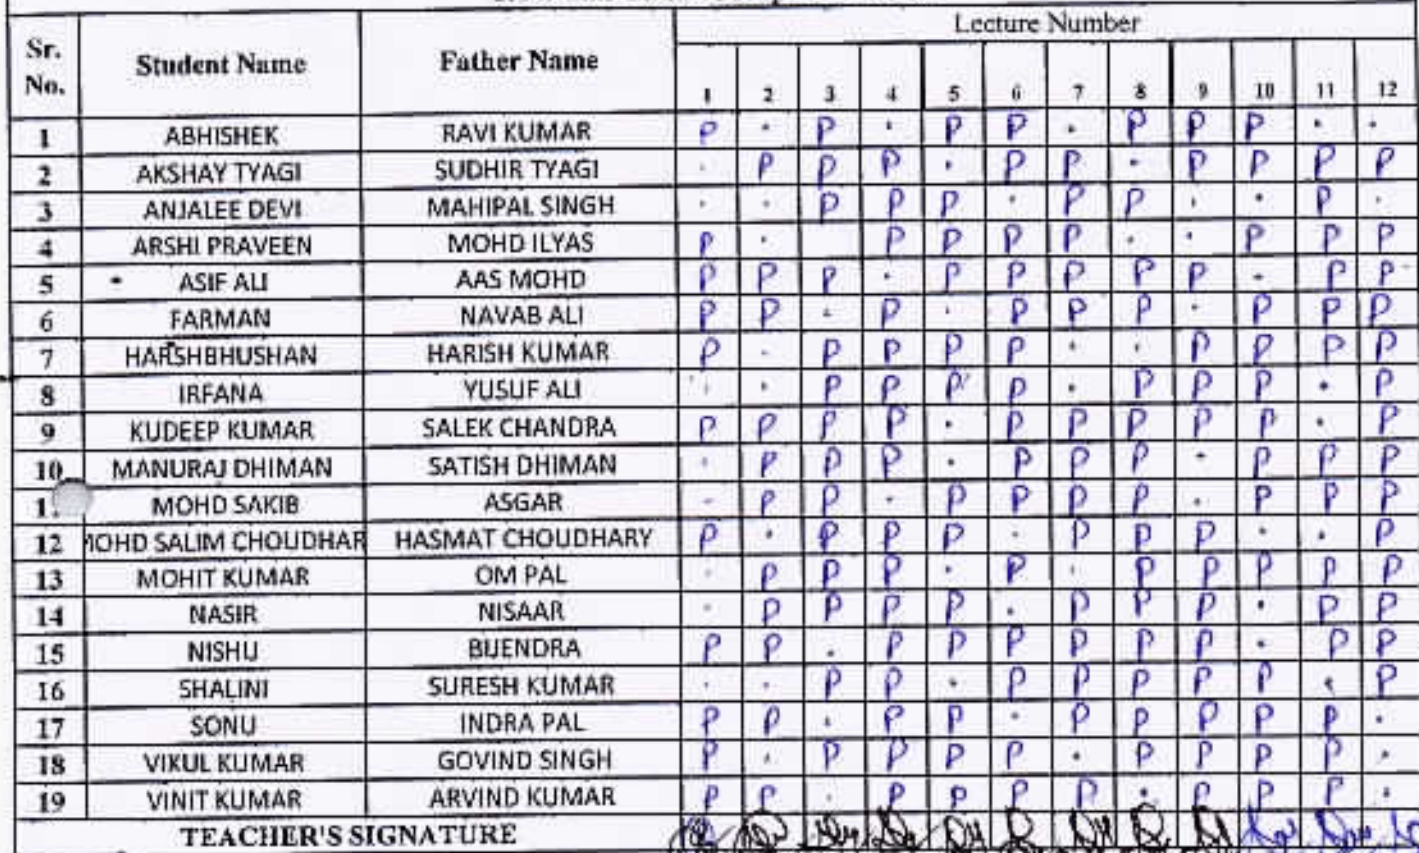 Lecture Number
Sr. No. Student Name Father Name 1 2 3 4 5 6 7 8 9 10 11 12
1 ABHISHEK RAVI KUMAR P . P . P P . P P P . .
2 AKSHAY TYAGI SUDHIR TYAGI . P P P . P P . P P P P
3 ANJALEE DEVI MAHIPAL SINGH . . P P P . P P . . P .
4 ARSHI PRAVEEN MOHD ILYAS P . P P P P . . P P P
5 ASIF ALI AAS MOHD P P P . P P P P P . P P
6 FARMAN NAVAB ALI P P . P . P P P . P P P
7 HARSHBHUSHAN HARISH KUMAR P . P P P P . . P P P P
8 IRFANA YUSUF ALI . . P P P P . P P P . P
9 KUDEEP KUMAR SALEK CHANDRA P P P P . P P P P P . P
10 MANURAJ DHIMAN SATISH DHIMAN . P P P . P P P . P P P
MOHD SAKIB ASGAR - P P . P P P P . P P P
12 MOHD SALIM CHOUDHAR HASMAT CHOUDHARY P . P P P . P P P . . P
13 MOHIT KUMAR OM PAL . P P P . P . P P P P P
14 NASIR NISAAR . P P P P . P P P . P P
15 NISHU BIJENDRA P P . P P P P P P . P P
16 SHALINI SURESH KUMAR . . P P . P P P P P . P
17 SONU INDRA PAL P P . P P . P P P P P .
18 VIKUL KUMAR GOVIND SINGH P . P P P P . P P P P .
19 VINIT KUMAR ARVIND KUMAR P P . P P P P . P P P .
TEACHER'S SIGNATURE